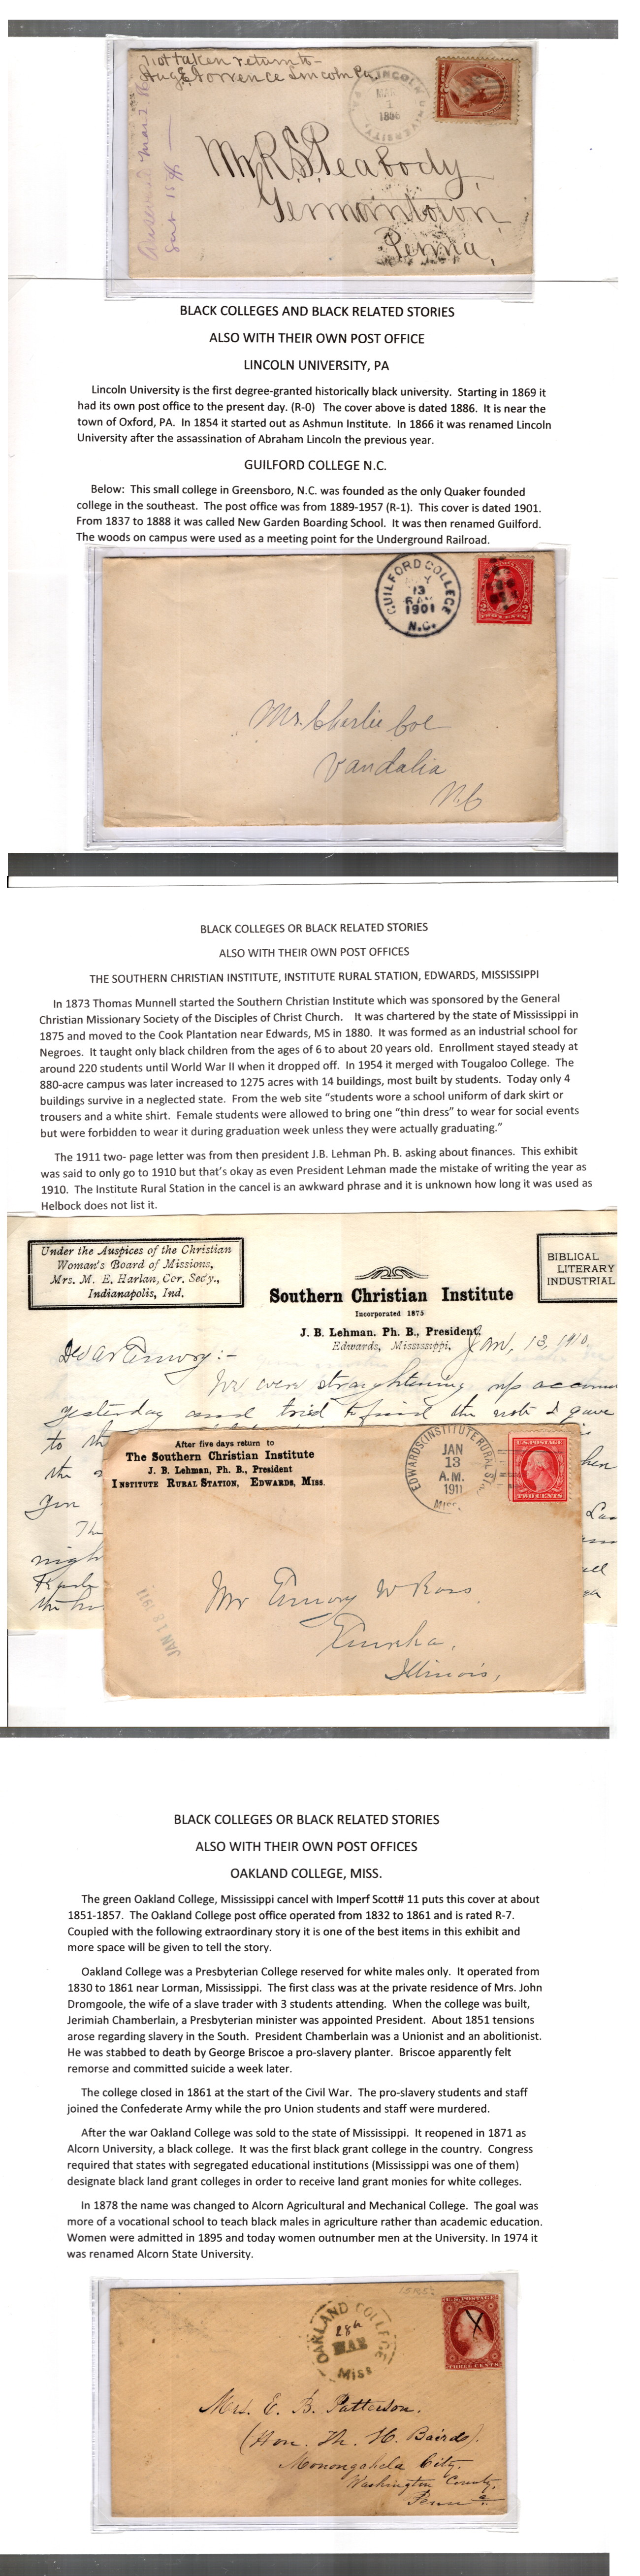 not taken return to-
Lincoln Pa.
LINCOLN UNIVERSITY, PA.
MAR
Mr R S Peabody,
Germantown,
Penna,
BLACK COLLEGES AND BLACK RELATED STORIES
ALSO WITH THEIR OWN POST OFFICE
LINCOLN UNIVERSITY, PA
Lincoln University is the first degree-granted historically black university. Starting in 1869 it
had its own post office to the present day. (R-0) The cover above is dated 1886. It is near the
town of Oxford, PA. In 1854 it started out as Ashmun Institute. In 1866 it was renamed Lincoln
University after the assassination of Abraham Lincoln the previous year.
GUILFORD COLLEGE N.C.
Below: This small college in Greensboro, N.C. was founded as the only Quaker founded
college in the southeast. The post office was from 1889-1957 (R-1). This cover is dated 1901.
From 1837 to 1888 it was called New Garden Boarding School. It was then renamed Guilford.
The woods on campus were used as a meeting point for the Underground Railroad.
GUILFORD COLLEGE
13
1901
N.C.
Mr. Charlie Coe
Vandalia
N.C
BLACK COLLEGES OR BLACK RELATED STORIES
ALSO WITH THEIR OWN POST OFFICES
THE SOUTHERN CHRISTIAN INSTITUTE, INSTITUTE RURAL STATION, EDWARDS, MISSISSIPPI
In 1873 Thomas Munnell started the Southern Christian Institute which was sponsored by the General
Christian Missionary Society of the Disciples of Christ Church. It was chartered by the state of Mississippi in
1875 and moved to the Cook Plantation near Edwards, MS in 1880. It was formed as an industrial school for
Negroes. It taught only black children from the ages of 6 to about 20 years old. Enrollment stayed steady at
around 220 students until World War II when it dropped off. In 1954 it merged with Tougaloo College. The
880-acre campus was later increased to 1275 acres with 14 buildings, most built by students. Today only 4
buildings survive in a neglected state. From the web site “students wore a school uniform of dark skirt or
trousers and a white shirt. Female students were allowed to bring one “thin dress” to wear for social events
but were forbidden to wear it during graduation week unless they were actually graduating.”
The 1911 two- page letter was from then president J.B. Lehman Ph. B. asking about finances. This exhibit
was said to only go to 1910 but that’s okay as even President Lehman made the mistake of writing the year as
1910. The Institute Rural Station in the cancel is an awkward phrase and it is unknown how long it was used as
Helbock does not list it.
Under the Auspices of the Christian
Woman's Board of Missions,
Mrs. M. E. Harlan, Cor. Secy.,
Indianapolis, Ind.
BIBLICAL
LITERARY
INDUSTRIAL
Southern Christian Institute
Incorporated 1875
J. B. Lehman. Ph. B., President.
Edwards, Mississippi, Jan, 13, 1910,
Dear Emory:-
We were straightening up
yesterday and tried to find the note I gave
to
the
you
night
After five days return to
The Southern Christian Institute
J. B. Lehman, Ph. B., President
INSTITUTE RURAL STATION, EDWARDS, MISS.
EDWARDS (INSTITUTE RURAL STA.)
JAN
13
A.M.
1911
MISS.
U.S. POSTAGE
TWO CENTS
JAN 13 1911
Mr Emory W Ross
Eureka,
Illinois,
BLACK COLLEGES OR BLACK RELATED STORIES
ALSO WITH THEIR OWN POST OFFICES
OAKLAND COLLEGE, MISS.
The green Oakland College, Mississippi cancel with Imperf Scott# 11 puts this cover at about
1851-1857. The Oakland College post office operated from 1832 to 1861 and is rated R-7.
Coupled with the following extraordinary story it is one of the best items in this exhibit and
more space will be given to tell the story.
Oakland College was a Presbyterian College reserved for white males only. It operated from
1830 to 1861 near Lorman, Mississippi. The first class was at the private residence of Mrs. John
Dromgoole, the wife of a slave trader with 3 students attending. When the college was built,
Jerimiah Chamberlain, a Presbyterian minister was appointed President. About 1851 tensions
arose regarding slavery in the South. President Chamberlain was a Unionist and an abolitionist.
He was stabbed to death by George Briscoe a pro-slavery planter. Briscoe apparently felt
remorse and committed suicide a week later.
The college closed in 1861 at the start of the Civil War. The pro-slavery students and staff
joined the Confederate Army while the pro Union students and staff were murdered.
After the war Oakland College was sold to the state of Mississippi. It reopened in 1871 as
Alcorn University, a black college. It was the first black grant college in the country. Congress
required that states with segregated educational institutions (Mississippi was one of them)
designate black land grant colleges in order to receive land grant monies for white colleges.
In 1878 the name was changed to Alcorn Agricultural and Mechanical College. The goal was
more of a vocational school to teach black males in agriculture rather than academic education.
Women were admitted in 1895 and today women outnumber men at the University. In 1974 it
was renamed Alcorn State University.
OAKLAND COLLEGE
28h
MAR
Miss
U.S. POSTAGE
THREE CENTS
Mrs. E. B. Patterson.
(Hon. Th. H. Baird).
Monongahela City,
Washington County,
Penna.